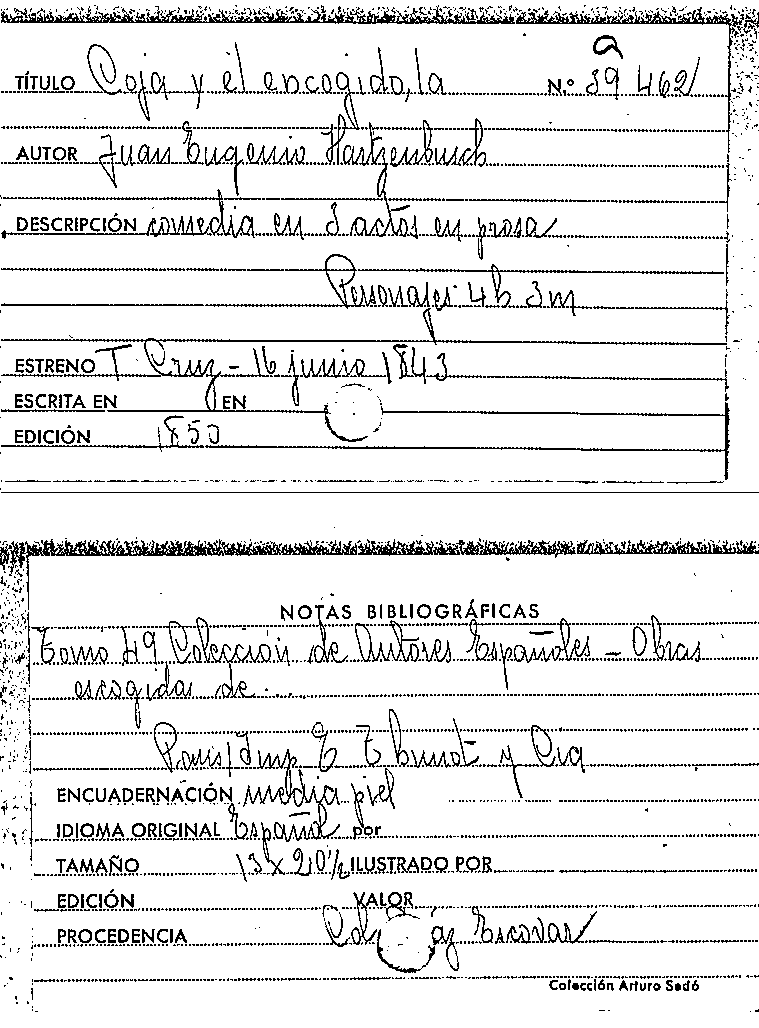 TÍTULO Coja y el encogido, la N.º 39 462
a
AUTOR Juan Eugenio Hartzenbusch
DESCRIPCIÓN comedia en 3 actos en prosa
Personajes 4h 3m
ESTRENO T. Cruz - 16 junio 1843
ESCRITA EN EN
EDICIÓN 1850
NOTAS BIBLIOGRÁFICAS
Tomo 49 Colección de Autores Españoles - Obras
escogidas de ....
Paris/Imp E Thunot y Cia
ENCUADERNACIÓN media piel
IDIOMA ORIGINAL Español por
TAMAÑO 13 x 20½ ILUSTRADO POR
EDICIÓN VALOR
PROCEDENCIA Col Escovar
Colección Arturo Sedó